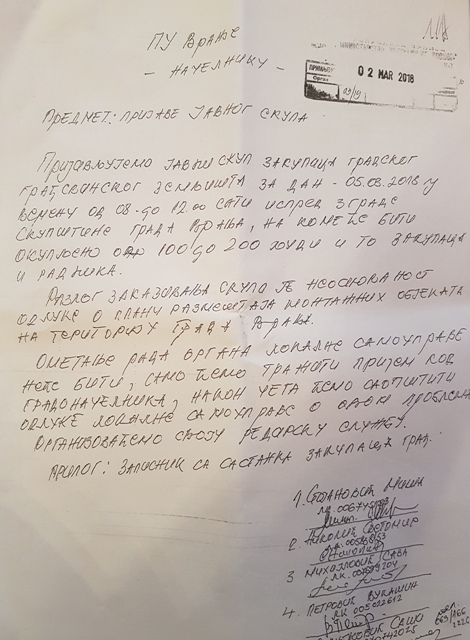 ПУ ВРАЊЕ
- НАЧЕЛНИКУ -
02 MAR 2018
ПРЕДМЕТ: ПРИЈАВЕ ЈАВНОГ СКУПА
ПРИЈАВЉУЈЕМО ЈАВНИ СКУП ЗАКУПАЦА ГРАДСКОГ
ГРАЂЕВИНСКОГ ЗЕМЉИШТА ЗА ДАН - 05.03.2018 у
ВЕМЕНУ ОД 08-ДО 12.00 САТИ ИСПРЕД ЗГРАДЕ
СКУПШТИНЕ ГРАДА ВРАЊА, НА КОМЕ ЋЕ БИТИ
ОКУПЉЕНО ОД 100 ДО 200 ЉУДИ И ТО ЗАКУПАЦА
И РАДНИКА.
РАЗЛОГ ЗАКАЗИВАЊА СКУПА ЈЕ НЕОСНОВАНОСТ
ОДЛУКЕ О ПЛАНУ РАЗМЕШТАЈА МОНТАЖНИХ ОБЈЕКАТА
НА ТЕРИТОРИЈИ ГРАДА ВРАЊА.
ОМЕТАЊЕ РАДА ОРГАНА ЛОКАЛНЕ САМОУПРАВЕ
НЕЋЕ БИТИ, САМО ЋЕМО ТРАЖИТИ ПРИЈЕМ КОД
ГРАДОНАЧЕЛНИКА, НАКОН ЧЕГА ЋЕМО САОПШТИТИ
ОДЛУКЕ ЛОКАЛНЕ САМОУПРАВЕ О ОВОМ ПРОБЛЕМУ
ОРГАНИЗОВАЋЕМО СВОЈУ РЕДАРСКУ СЛУЖБУ.
ПРИЛОГ: ЗАПИСНИК СА САСТАНКА ЗАКУПАЦА ГРАЂ.
1. СТОЈАНОВИЋ
ЛК.
2. НИКОЛИЋ СВЕТОМИР
ЛК.
3 МИХАЈЛОВИЋ САВА
ЛК.
4. ПЕТРОВИЋ ВУКАШИН
ЛК 005022612
САША